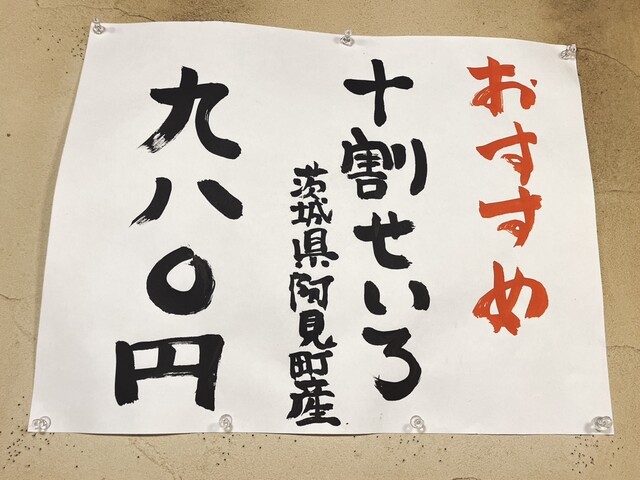 おすすめ
十割せいろ
茨城県阿見町産
九八〇円